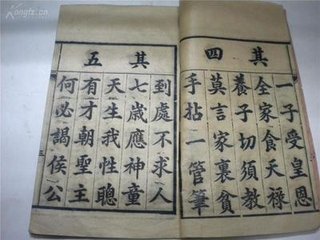 其四
一子受皇恩
全家食天祿
養子切須教
莫言家裏貧
手拈一管筆
其五
到處不求人
七歲應神童
天生我性聰
有才朝聖主
何必謁侯公